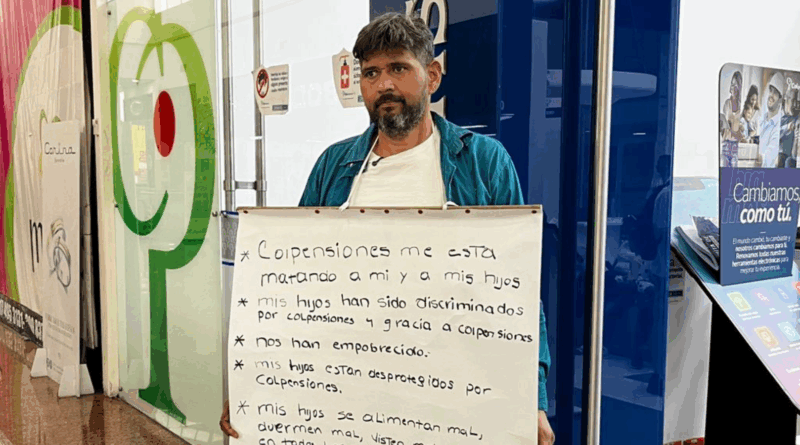 * Colpensiones me está
matando a mi y a mis hijos
* mis hijos han sido discriminados
por colpensiones y gracia a colpensiones
* nos han empobrecido.
* mis hijos estan desprotegidos por
Colpensiones.
* mis hijos se alimentan mal,
duermen mal, visten
en toda
Carina
Cambiamos,
como tú.
El mundo cambió, tu cambiaste y
nosotros cambiamos para ti.
Renovamos todas nuestras
herramientas electrónicas para
mejorar tu experiencia.